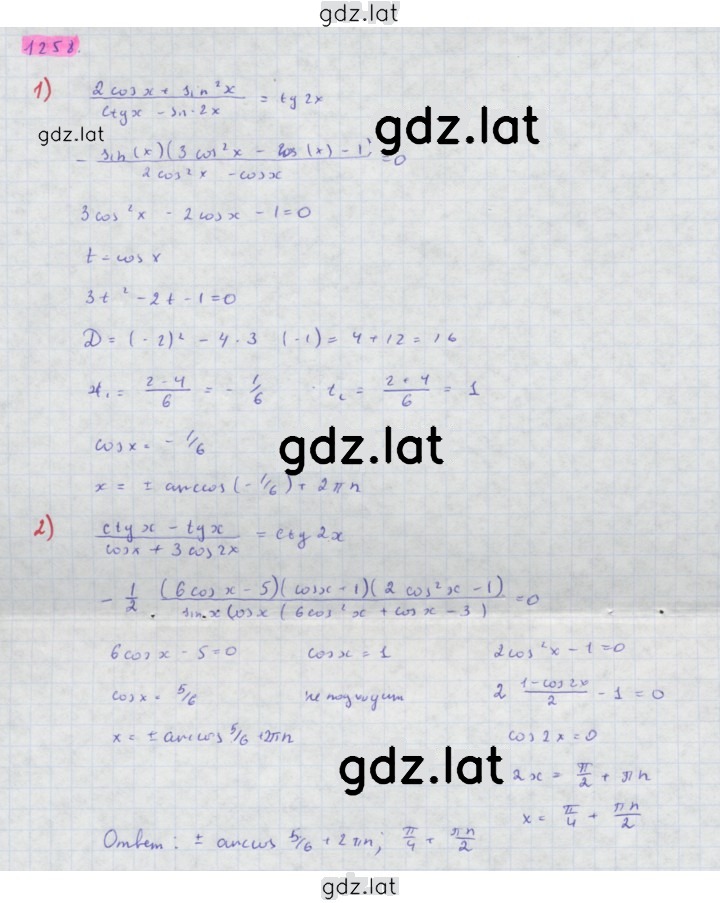 gdz.lat
1258.
1) (2cosx + sin²x)/(ctgx - sin2x) = tg2x
gdz.lat
gdz.lat
- (sin(x)(3cos²x - 2cos(x) - 1))/(2cos²x - cosx) = 0
3cos²x - 2cosx - 1 = 0
t = cosx
3t² - 2t - 1 = 0
D = (-2)² - 4·3 (-1) = 4 + 12 = 16
x₁ = (2-4)/6 = - 1/6 t₂ = (2+4)/6 = 1
cosx = - 1/6
gdz.lat
x = ± arccos(-1/6) + 2πn
2) (ctgx - tgx)/(cosx + 3cos2x) = ctg2x
- 1/2 ((6cosx - 5)(cosx + 1)(2cos²x - 1))/(sinx cosx (6cos²x + cosx - 3)) = 0
6cosx - 5 = 0 cosx = 1 2cos²x - 1 = 0
cosx = 5/6 не подходит 2 (1-cos2x)/2 - 1 = 0
x = ± arccos 5/6 + 2πn cos2x = 0
gdz.lat
2x = π/2 + πn
x = π/4 + πn/2
Ответ: ± arccos 5/6 + 2πn; π/4 + πn/2
gdz.lat